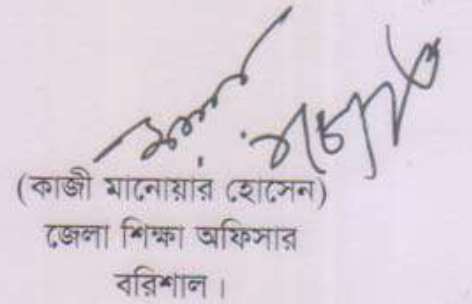 (কাজী মানোয়ার হোসেন)
জেলা শিক্ষা অফিসার
বরিশাল।